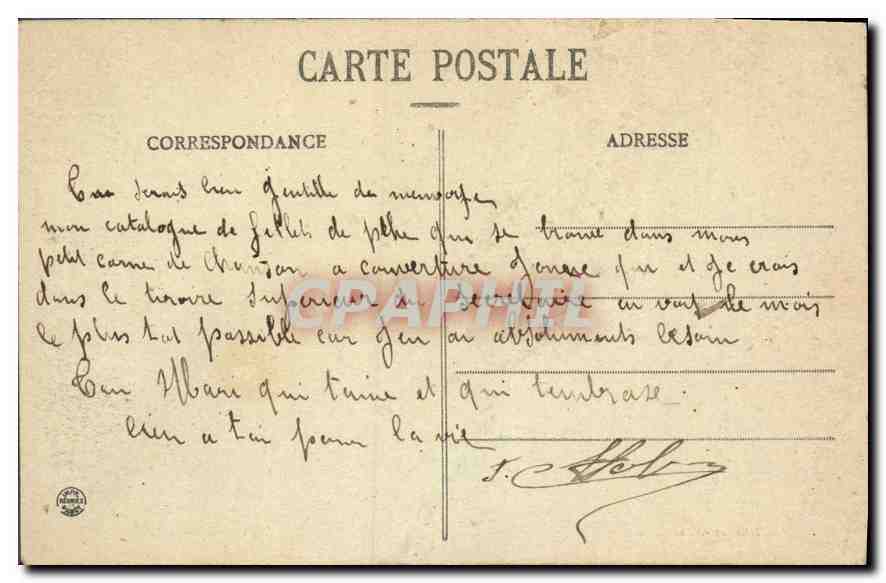 CARTE POSTALE
CORRESPONDANCE
ADRESSE
Tu serais bien gentille de
mon catalogue de fillets de pêhe qui se trouve dans mons
petit carne de chanson a couverture qui et je crois
dans le tiroire superieur du secretaire en voit le mois
le plus tot possible car jen ai absoluments besoin
Ton Mari qui taime et qui tembrase
bien a toi pour la vie
CPAPHIL